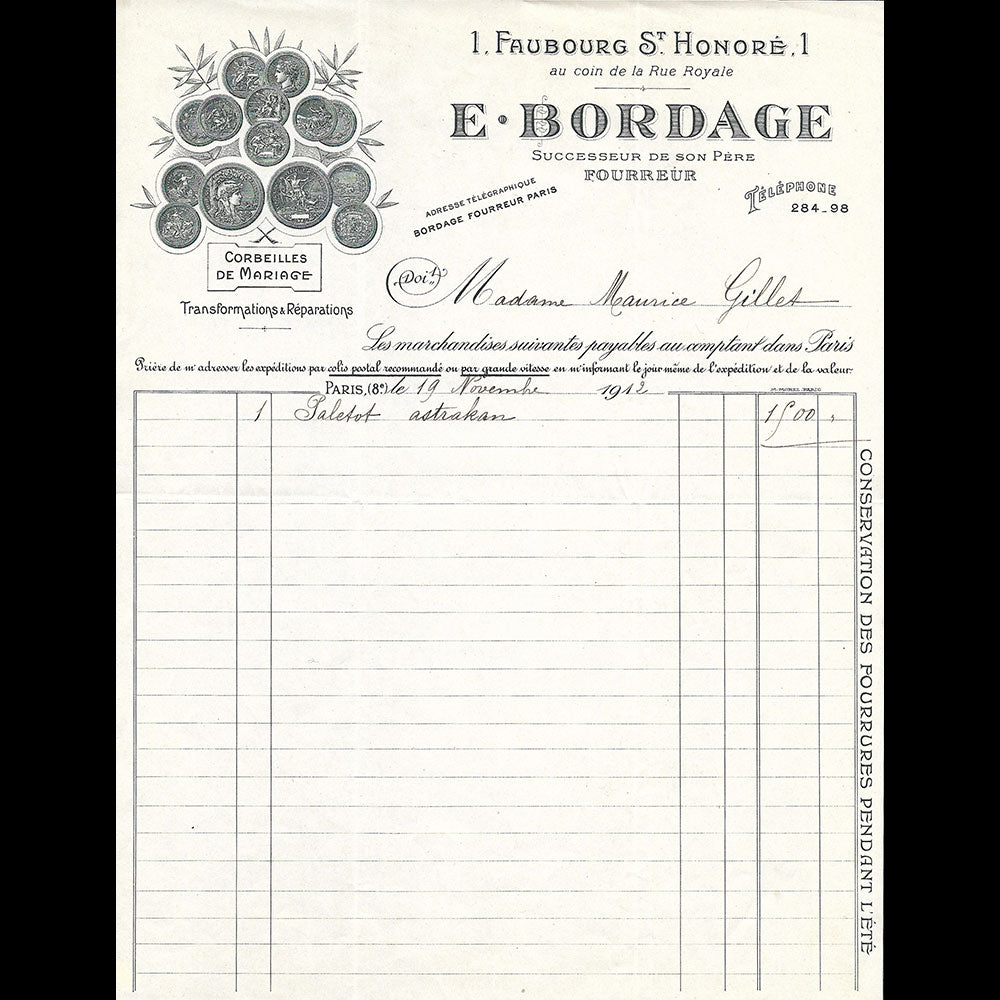 1, FAUBOURG ST HONORÉ, 1
au coin de la Rue Royale
E • BORDAGE
SUCCESSEUR DE SON PÈRE
FOURREUR
ADRESSE TÉLÉGRAPHIQUE
BORDAGE FOURREUR PARIS
TÉLÉPHONE
284_98
CORBEILLES
DE MARIAGE
Transformations & Réparations
Doit Madame Maurice Gillet
Les marchandises suivantes payables au comptant dans Paris
Prière de m'adresser les expéditions par colis postal recommandé ou par grande vitesse en m'informant le jour même de l'expédition et de la valeur.
PARIS, (8e) le 19 Novembre 1912
1 Paletot astrakan 1500 "
CONSERVATION DES FOURRURES PENDANT L'ÉTÉ